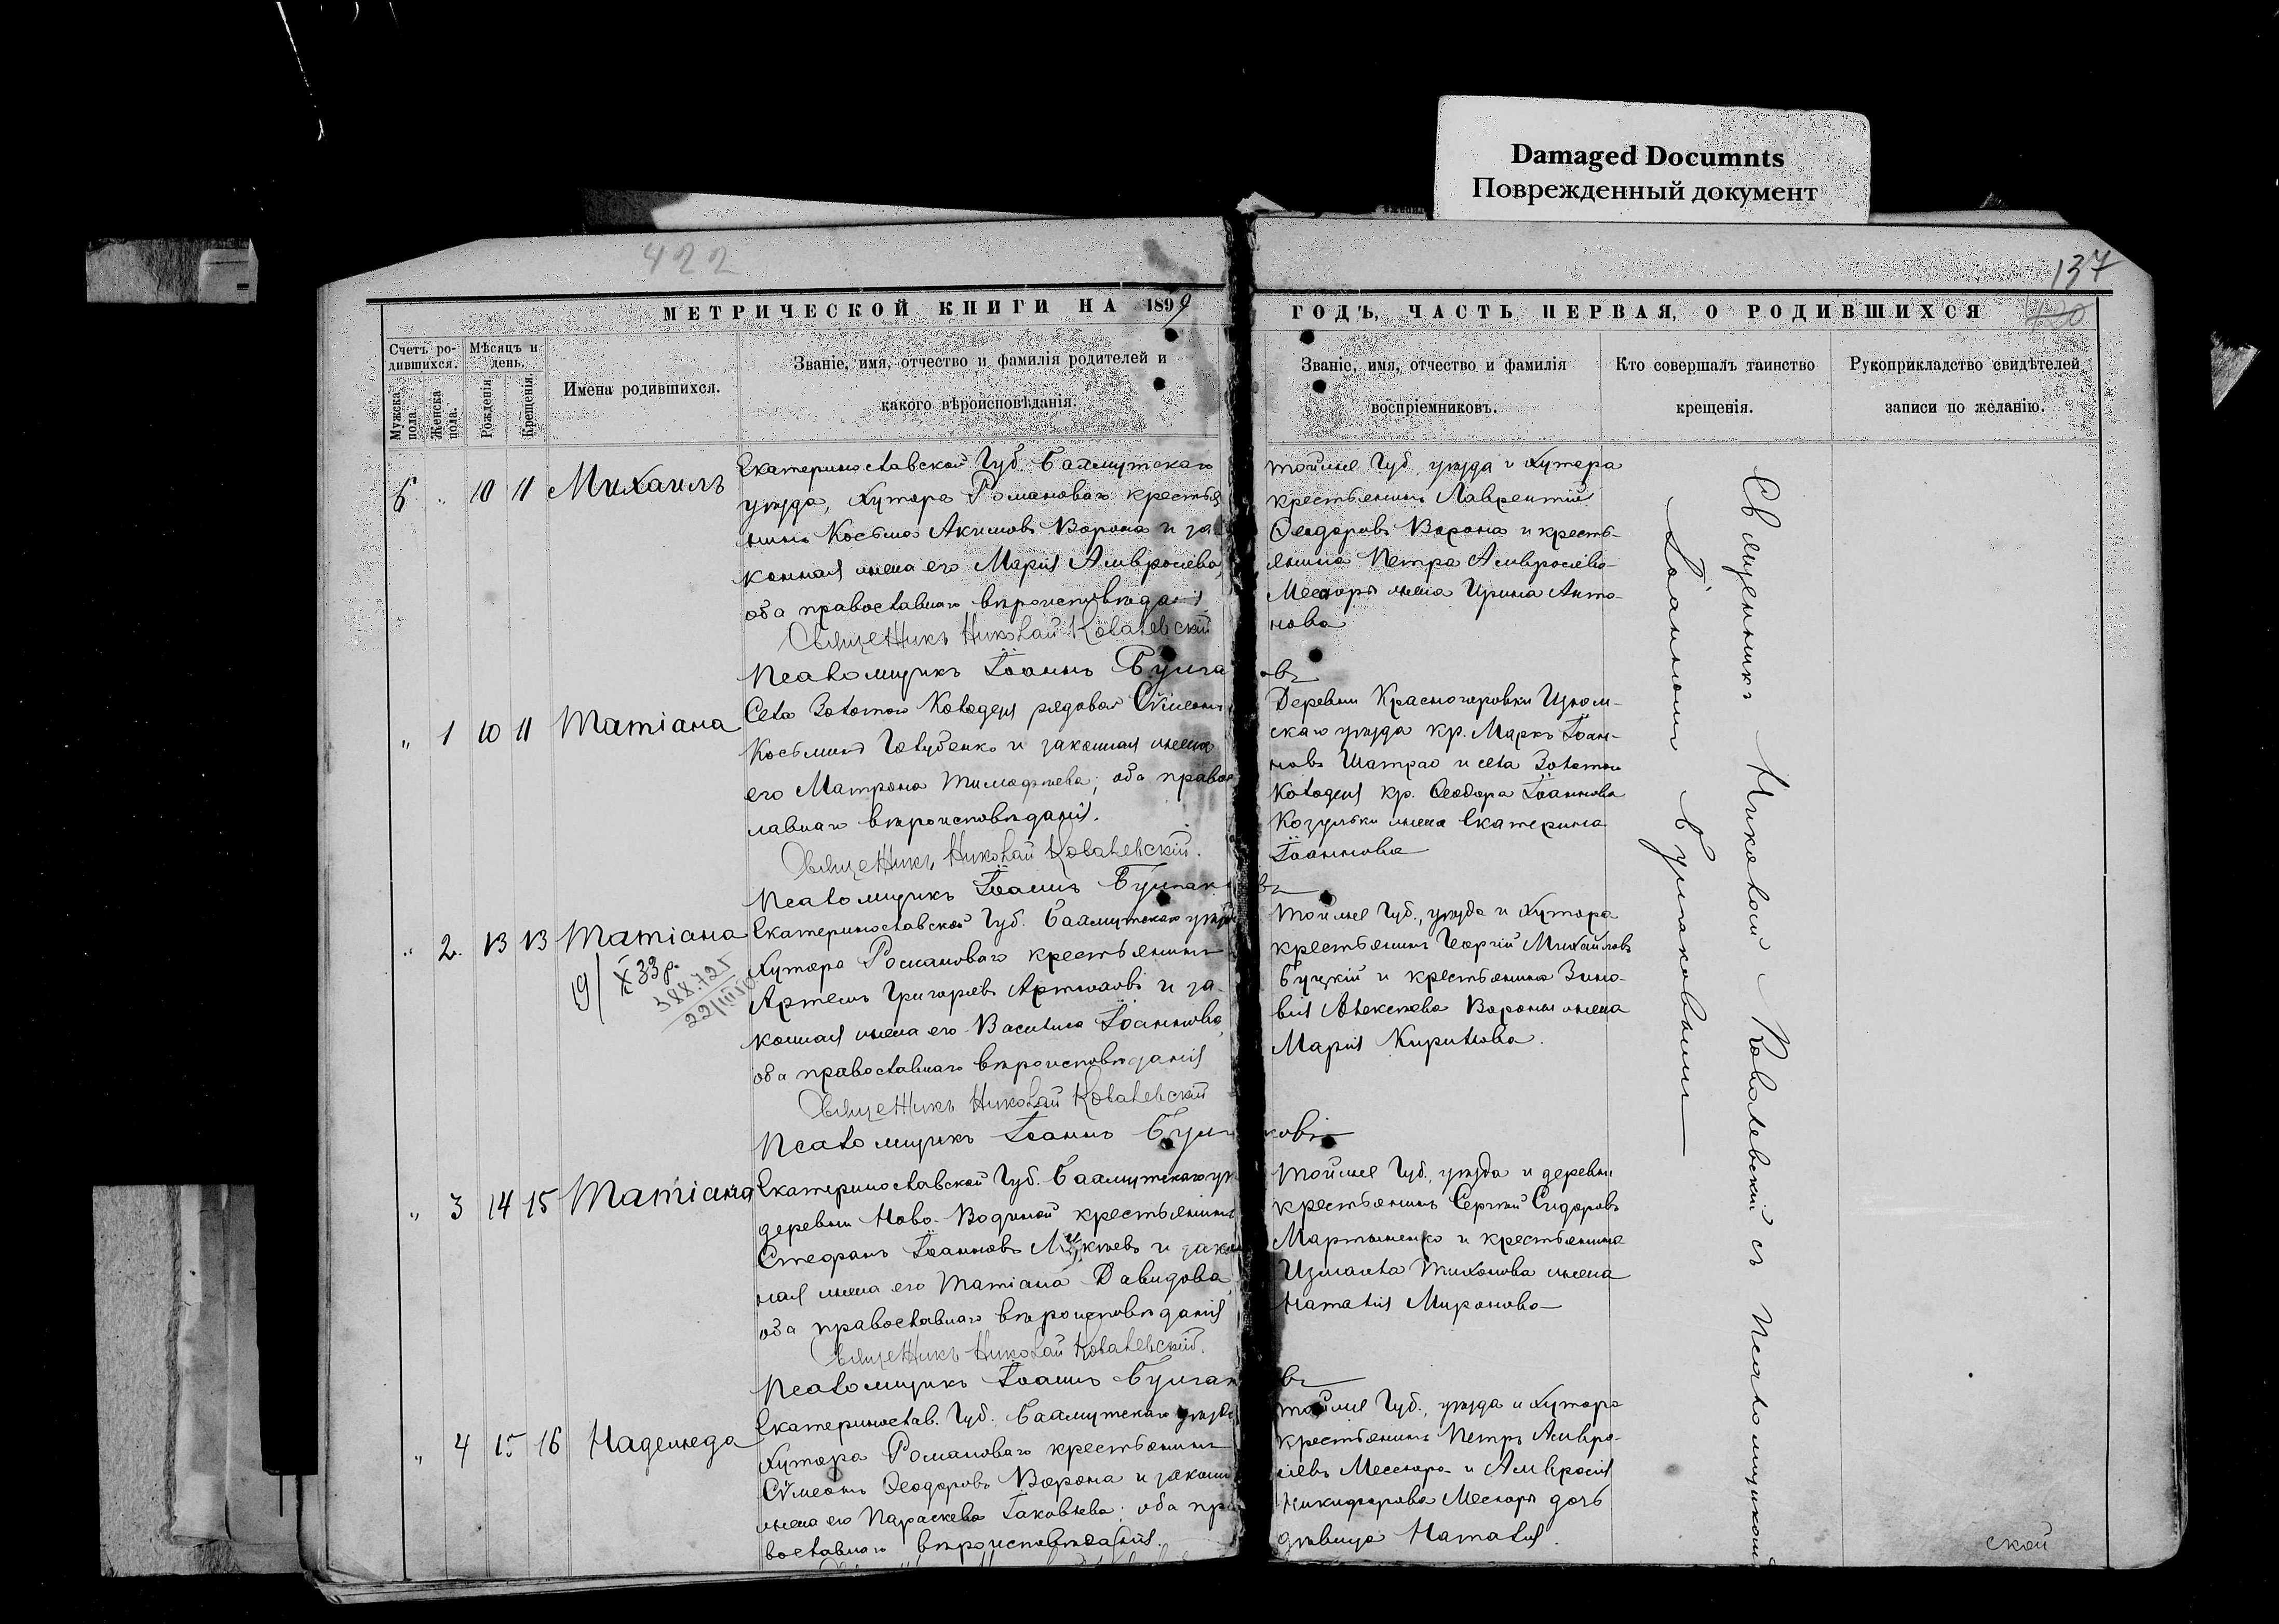 Damaged Documnts
Поврежденный документ
422
137
120
МЕТРИЧЕСКОЙ КНИГИ НА 1899
ГОДЪ, ЧАСТЬ ПЕРВАЯ, О РОДИВШИХСЯ
Счетъ ро-
дившихся.
Мужска
пола.
Женска
пола.
Мѣсяцъ и
день.
Рожденія.
Крещенія.
Имена родившихся.
Званіе, имя, отчество и фамилія родителей и
какого вѣроисповѣданія.
Званіе, имя, отчество и фамилія
воспріемниковъ.
Кто совершалъ таинство
крещенія.
Рукоприкладство свидѣтелей
записи по желанію.
6 " 10 11 Михаилъ
Екатеринославской Губ. Бахмутскаго
уѣзда, Хутора Романоваго крестья
нинъ Косьма Акимовъ Ворона и за
конная жена его Марія Амвросіева,
оба православнаго вѣроисповѣданія
Священникъ Николай Ковалевскій
Псаломщикъ Іоаннъ Булга овъ
тойже Губ. уѣзда и Хутора
крестьянинъ Лаврентій
Ѳеодоровъ Ворона и кресть-
янина Петра Амвросіева
Месюры жена Ирина Анто-
нова
" 1 10 11 Татіана
Села Золотой Колодезя рядовой Сѵмеонъ
Косьминъ Голубенко и законная жена
его Матрона Тимофеева, оба правос
лавнаго вѣроисповѣданія.
Священникъ Николай Ковалевскій.
Псаломщикъ Іоаннъ Булгак въ
Деревни Красногоровки Изюм-
скаго уѣзда кр. Маркъ Іоан-
новъ Шатрао и села Золотой
Колодезя кр. Ѳеодора Іоаннова
Козульки жена Екатерина
Іоаннова
" 2. 13 13 Татіана
19/X 33 р.
388.725
22/III 50
Екатеринославской Губ. Бахмутскаго уѣзда
Хутора Романоваго крестьянинъ
Артемъ Григорьевъ Артюховъ и за-
конная жена его Василиса Іоаннова,
оба православнаго вѣроисповѣданія
Священникъ Николай Ковалевскій
Псаломщикъ Іоаннъ Булг ковъ
Тойже Губ., уѣзда и Хутора
крестьянинъ Георгій Михайловъ
Буцкій и крестьянина Зино-
вія Алексѣева Вороны жена
Марія Кирилова.
" 3 14 15 Татіана
Екатеринославской Губ. Бахмутскаго уѣ
деревни Ново-Водяной крестьянинъ
Стефанъ Іоанновъ и закон
ная жена его Татіана Давидова,
оба православнаго вѣроисповѣданія
Священникъ Николай Ковалевскій.
Псаломщикъ Іоаннъ Булгак въ
Тойже Губ., уѣзда и деревни
крестьянинъ Сергій Сидоровъ
Мартыненко и крестьянина
Измаила Тихонова жена
Наталія Миронова
" 4 15 16 Надежда
Екатеринослав. Губ. Бахмутскаго уѣзда
Хутора Романоваго крестьянинъ
Сѵмеонъ Ѳеодоровъ Ворона и законн
жена его Параскева Іаковлева; оба пра
вославнаго вѣроисповѣданія.
тойже Губ., уѣзда и Хутора
крестьянинъ Петръ Амвро-
сіевъ Месюра и Амвросія
Никифорова Месюры дочь
дѣвица Наталія.
Священникъ Николай Ковалевскій съ Псаломщикомъ
Іоанномъ Булгаковымъ
ской